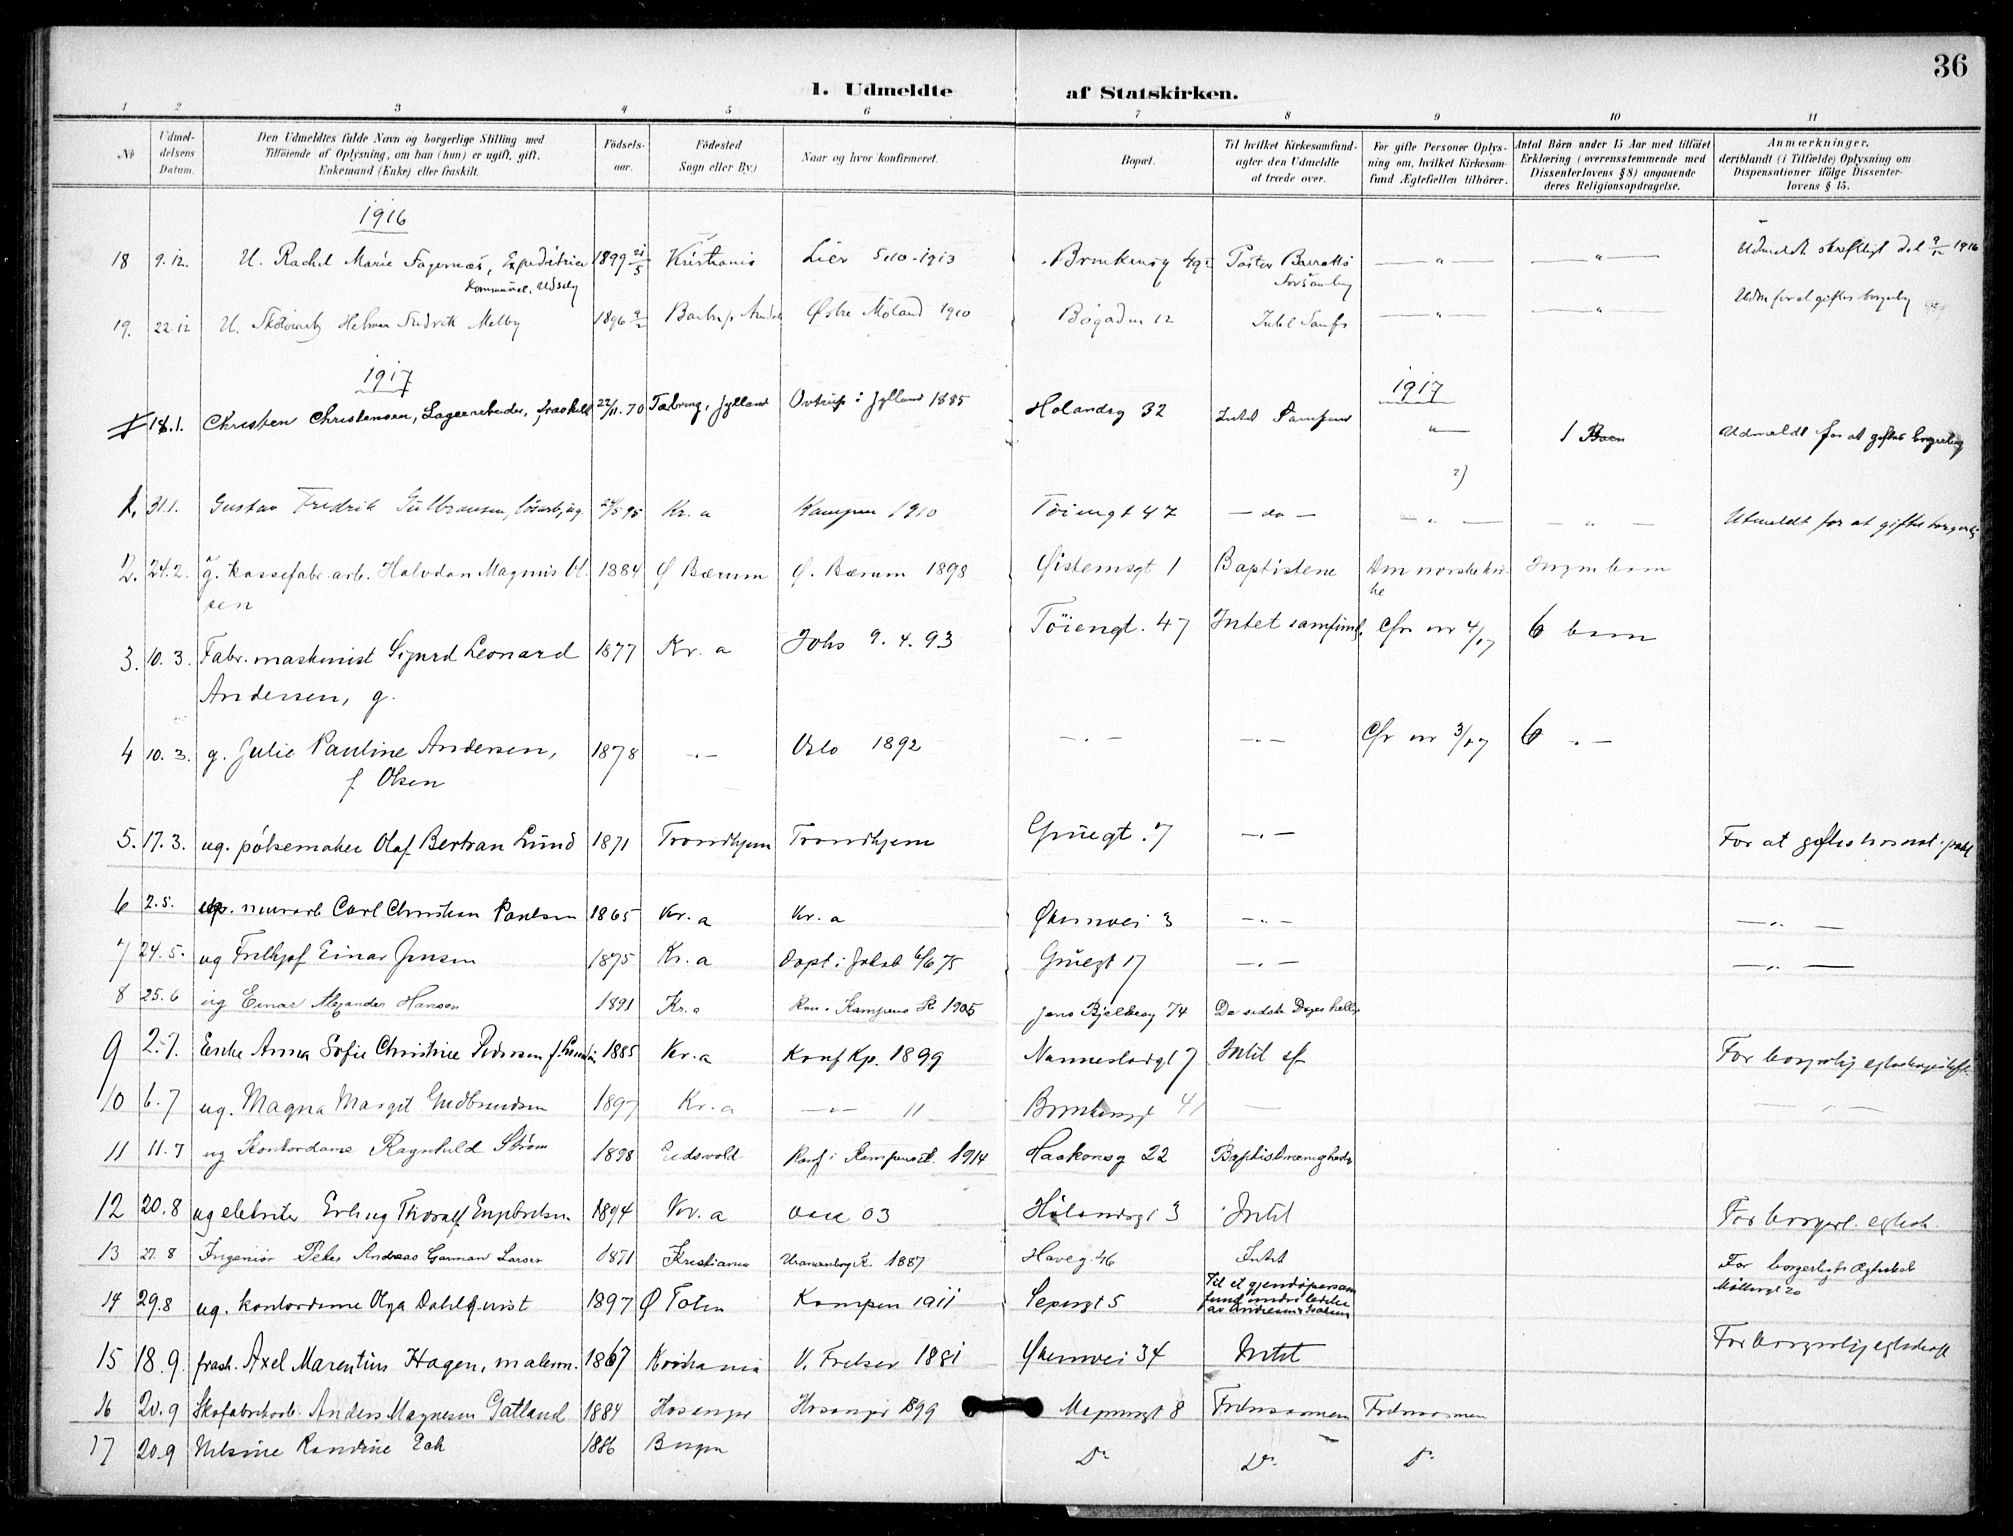 36
1. Udmeldte af Statskirken.
1 2 3 4 5 6 7 8 9 10 11
No
Udmeldelsens Datum.
Den Udmeldtes fulde Navn og borgerlige Stilling med
Tilföiende af Oplysning, om han (hun) er ugift, gift,
Enkemand (Enke) eller fraskilt.
Födselsaar.
Födested
Sogn eller By.)
Naar og hvor konfirmeret.
Bopæl.
Til hvilket Kirkesamfund
agter den Udmeldte
at træde over.
For gifte Personer Oplysning om, hvilket Kirkesamfund Ægtefællen tilhörer.
Antal Börn under 15 Aar med tilföiet
Erklæring (overensstemmende med
Dissenterlovens § 8) angaaende
deres Religionsopdragelse.
Anmærkninger,
deriblandt (i Tilfælde) Oplysning om
Dispensationer ifölge Dissenterlovens § 15.
1916
18 9.12. U. Rachel Marie Fagernæs, 1899 21/5 Kristiania Lier 5/10-1913 Pastor Barratts — " — — " — Udmeldt skriftligt 9/12 1916
19. 22.12 U. Helmer Fredrik Melby 1896 Østre Moland 1910 Bøgaden 12 Intet Samf. — " — — " — Udm for at giftes borgerlig
1917 1917
18.1. Christen Christensen, Lagerarbeider, fraskilt 22/11.70 Tæbring, Jylland Ovtrup i Jylland 1885 Holandsg 32 Intet Samfund " — 1 Barn Udmeldt for at giftes borgerlig
1. 31.1. Gustav Fredrik Gulbransen, løsarb, ug. 24/5 95 Kr.a Kampen 1910 Tøiengt 47 — do — — " — — " — Utmeldt for at giftes borgerlig
2. 24.2. g. kassefabr.arb. Halvdan Magnus Ol-
sen 1884 Ø Bærum Ø. Bærum 1898 Østernsgt 1 Baptistene Den norske kir-
ke Ingen barn
3. 10.3. Fabr.maskinist Sigurd Leonard
Andersen, g. 1877 Kr.a Johs 9.4.93 Tøiengt. 47 Intet samfund. Cfr nr 4/17 6 barn
4 10.3. g. Julie Pauline Andersen,
f. Olsen 1878 — " — Oslo 1892 — " — — " — Cfr nr 3/17 6 " —
5. 17.3. ug. pølsemaker Olaf Bertran Lund 1871 Trondhjem Trondhjem Grüegt. 7 — " — For at giftes
6 2.5. murarb Carl Christian Paulsen 1865 Kr.a Kr.a Økernvei 3 — " — — " —
7 24.5. ug Fridtjof Einar Jensen 1875 Kr.a Døpt i Jakob 6/6 75 Grüegt 17 — " — — " —
8 25.6 ug Einar Alexander Hansen 1891 Kr.a Kon. i Kampens K 1905 Jens Bjelkesg 74 De sidste Dages hellige
9 2.7. Enke Anna Sofie Christine Pedersen 1885 Kr.a Konf Kp. 1899 Nannestadgt 7 Intet sf For borgerlig
10 6.7 ug. Magna Margit Gudbrandsen 1897 Kr.a — " — 11 41 — — " —
11 11.7 ug Kontordame Ragnhild Strøm 1898 Eidsvold Konf i Kampens K. 1914 Haakonsg 22 Baptistmenigheden
12 20.8 ug Erling Thoralf Engebretsen 1894 Kr.a 03 Hølandsgt 3 Intet For borgerl. egtesk.
13 27.8 Ingeniør Peter Andreas Garman Larsen 1871 Kristiania Uranienborg K. 1887 Haveg. 46 Intet For borgerligt Ægteskab
Møllergt 20
14 29.8 ug. kontordame Olga Dahlqvist 1897 Ø Toten Kampen 1911 Sexesgt 5 Til et gjendøpersam-
fund under ledelse
15 18.9. frask. Axel Marentius Hagen, malerm. 1867 Kristiania V. Frelser 1881 Økernvei 34 Intet For borgerlig egteskap
16 20.9 Skofabrikarb. Anders Magnesen Gatland 1884 Hosanger Hosanger 1899 8 Frelsesarmeen Frelsesarmeen
17 20.9 Nilsine Randine Eek 1886 Bergen Do Do Do